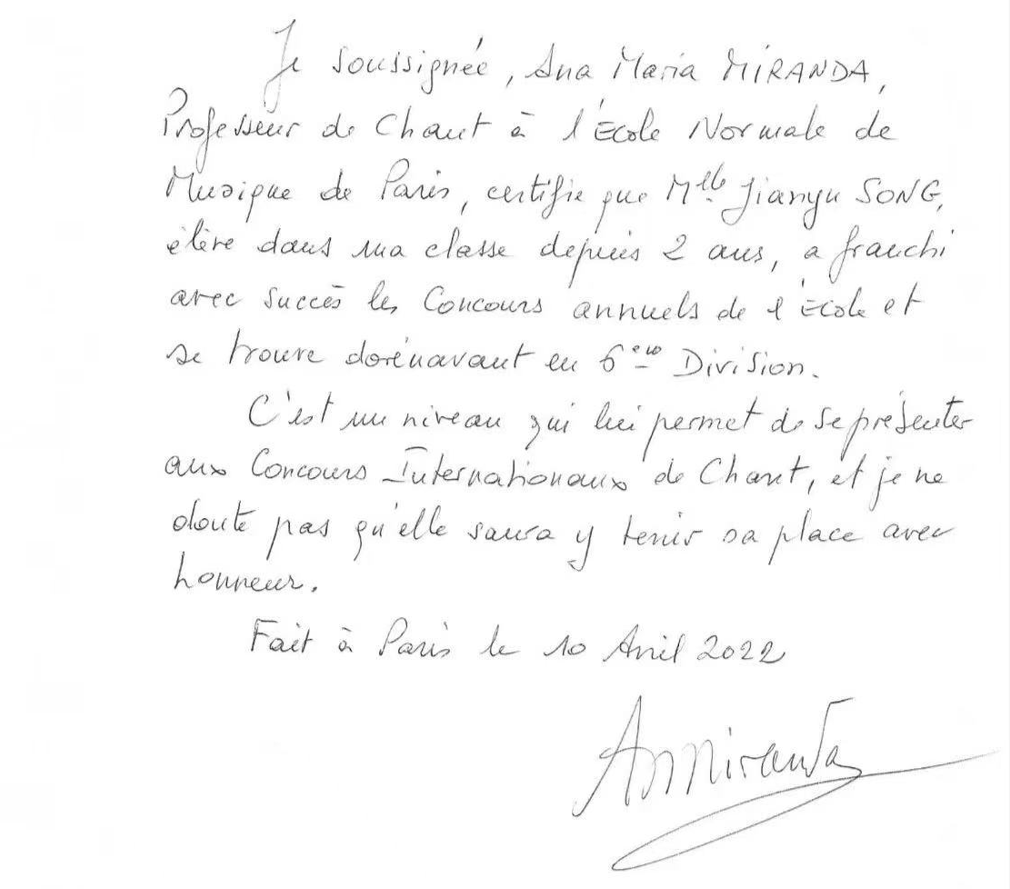 Je soussignée, Ana Maria MIRANDA,
Professeur de Chant à l'École Normale de
Musique de Paris, certifie que Mlle Jianyu SONG,
élève dans ma classe depuis 2 ans, a franchi
avec succès les Concours annuels de l'École et
se trouve dorénavant en 6ème Division.
C'est un niveau qui lui permet de se présenter
aux Concours Internationaux de Chant, et je ne
doute pas qu'elle saura y tenir sa place avec
honneur.
Fait à Paris le 10 Avril 2022
AMMiranda